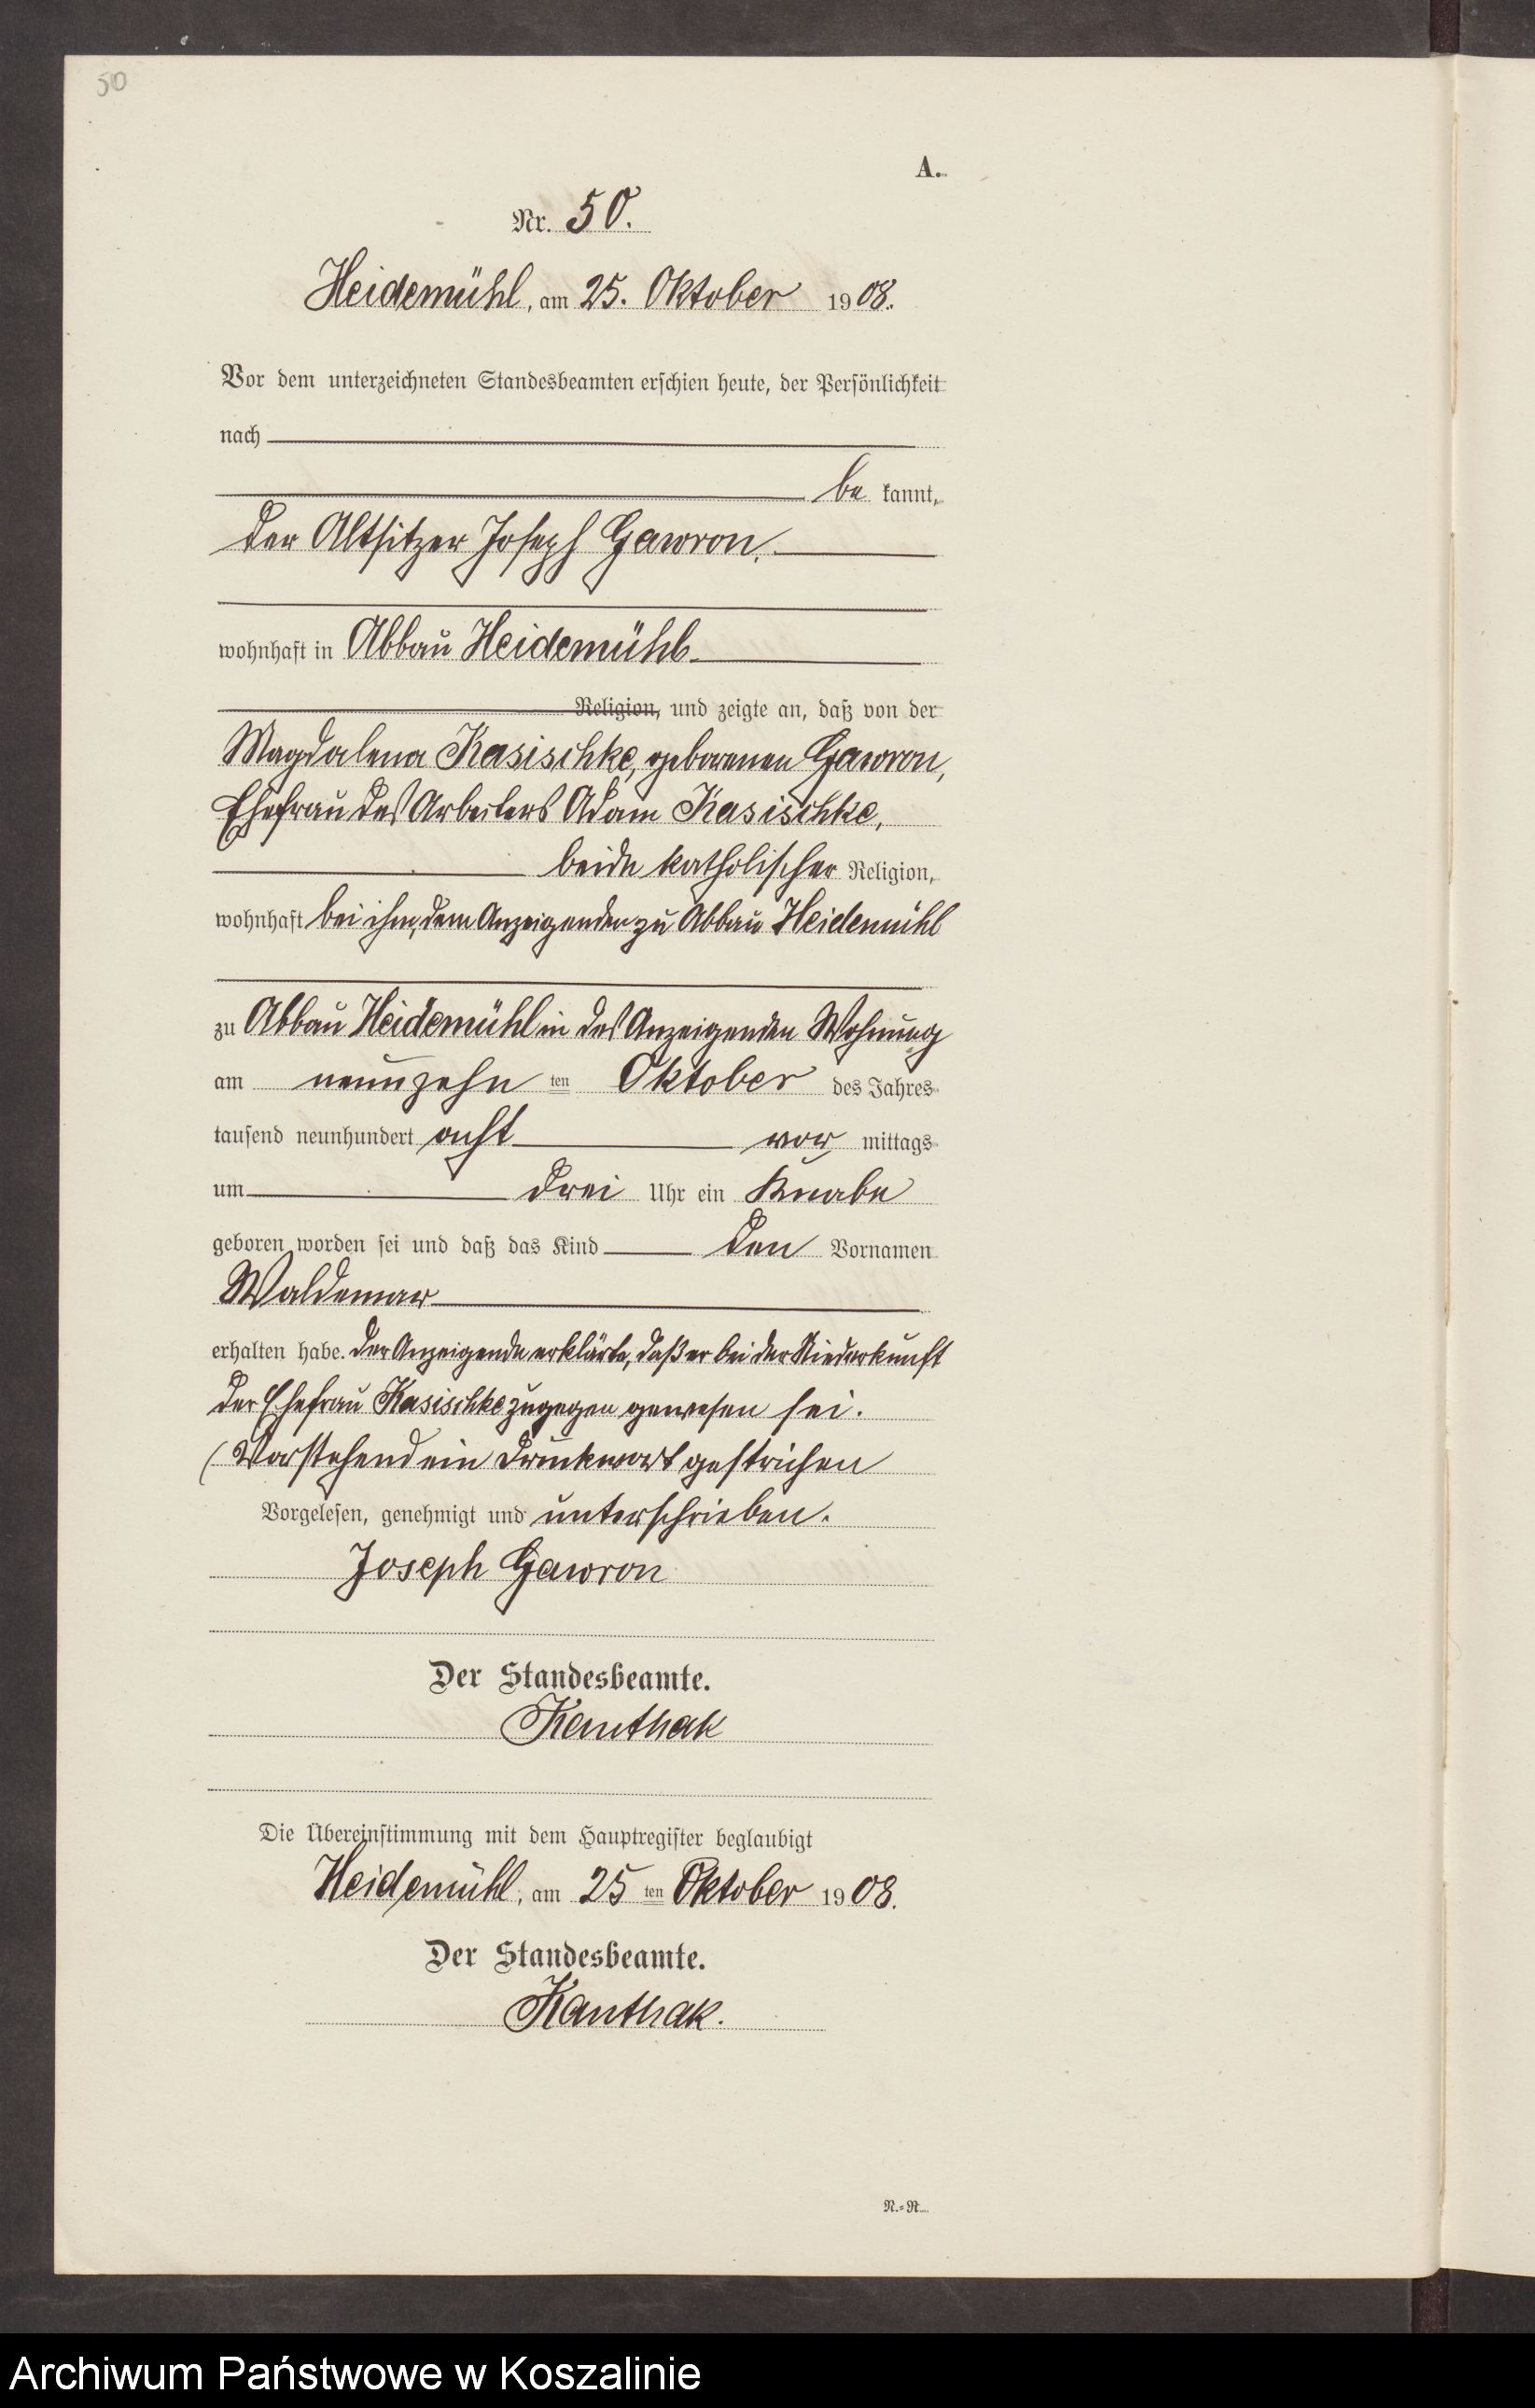 50
A.
Nr. 50.
Heidemühl, am 25. Oktober 1908.
Vor dem unterzeichneten Standesbeamten erschien heute, der Persönlichkeit
nach
be kannt,
der Altsitzer Joseph Gawron,
wohnhaft in Abbau Heidemühl
Religion, und zeigte an, daß von der
Magdalena Kasischke, geborenen Gawron,
Ehefrau des Arbeiters Adam Kasischke,
beide katholischer Religion,
wohnhaft bei ihm, dem Anzeigenden zu Abbau Heidemühl
zu Abbau Heidemühl in des Anzeigenden Wohnung
am neunzehn ten Oktober des Jahres
tausend neunhundert acht vor mittags
um drei Uhr ein Knabe
geboren worden sei und daß das Kind den Vornamen
Waldemar
erhalten habe. Der Anzeigende erklärte, daß er bei der Niederkunft
der Ehefrau Kasischke zugegen gewesen sei.
(Vorstehend ein Druckwort gestrichen
Vorgelesen, genehmigt und unterschrieben.
Joseph Gawron
Der Standesbeamte.
Kanthak
Die Übereinstimmung mit dem Hauptregister beglaubigt
Heidemühl, am 25 ten Oktober 1908.
Der Standesbeamte.
Kanthak.
N.=R.
Archiwum Państwowe w Koszalinie